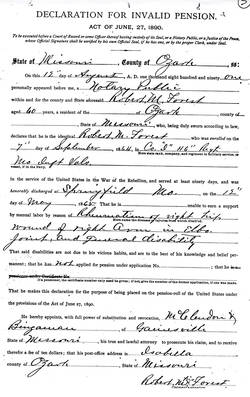 DECLARATION FOR INVALID PENSION.
ACT OF JUNE 27, 1890.
To be executed before a Court of Record or some Officer thereof having custody of its Seal, or a Notary Public, or a Justice of the Peace,
whose Official Signature shall be verified by his own Official Seal, if he has one, or by the proper Clerk, under Seal.
State of Missouri, County of Ozark, ss:
On this 12" day of August, A. D. one thousand eight hundred and ninety one
personally appeared before me, a Notary Public
within and for the county and State aforesaid Robert M. Forest
aged 60 years, a resident of the of Ozark
county, State of Missouri, who, being duly sworn according to law,
declares that he is the identical Robert M. Forest who was enrolled on the
7" day of September, 1861, in Co. D
Mo Vols
in the service of the United States in the War of the Rebellion, and served at least ninety days, and was
honorably discharged at Springfield Mo. on the 12"
day of May, 1865. That he is unable to earn a support
by manual labor by reason of Rheumatism of right hip,
wound of right arm in Elbo
joint, and general disability
That said disabilities are not due to his vicious habits, and are to the best of his knowledge and belief
That he has not applied for pension under application No.
That he makes this declaration for the purpose of being placed on the pension-roll of the United States under
the provisions of the Act of June 27, 1890.
He hereby appoints, with full power of substitution and revocation, McClendon &
Bingaman of Gainesville
State of Missouri, his true and lawful attorney to prosecute his claim, and to receive
therefor a fee of ten dollars; that his post-office address is Isabella
county of Ozark State of Missouri
Robert M Forest